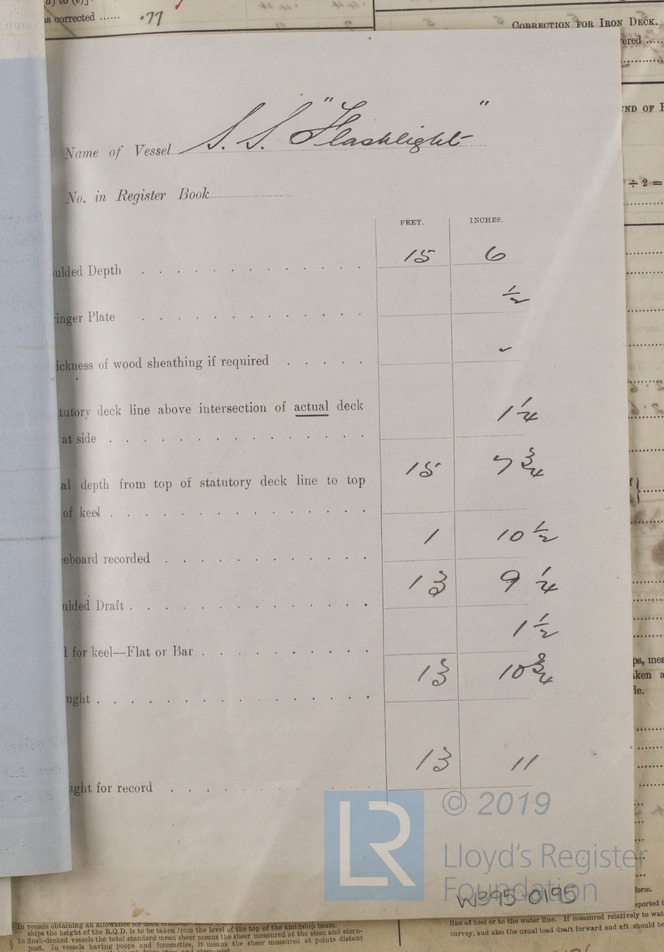 s corrected ...... .77
CORRECTION FOR IRON DECK.
Name of Vessel S.S. "Flashlight"
No. in Register Book
FEET. INCHES.
ulded Depth 15 6
inger Plate 1/2
ickness of wood sheathing if required -
tutory deck line above intersection of actual deck
at side 1 1/4
al depth from top of statutory deck line to top
of keel 15 7 3/4
eboard recorded 1 10 1/2
ulded Draft 13 9 1/4
l for keel—Flat or Bar 1 1/2
ught 13 10 3/4
ught for record 13 11
LR © 2019
Lloyd's Register
Foundation
W395-0195
÷ 2 =
In vessels obtaining an allowance for deck
ships the height of the R.Q.D. is to be taken from the level of the top of the amidship beam.
In flush-decked vessels the total standard mean sheer means the sheer measured at the stem and stern-
post. In vessels having poops and forecastles, it means the sheer measured at points distant
line of keel or to the water line. If measured relatively to wat
survey, and also the usual load draft forward and aft. should b